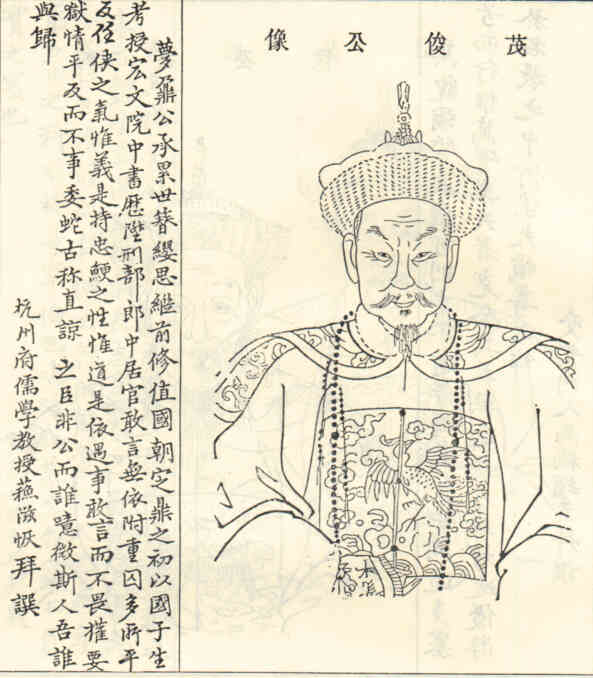 茂俊公像
夢鼐公承累世簪纓思繼前修值國朝定鼎之初以國子生
考授宏文院中書歷陞刑部郎中居官敢言無依附重囚多所平
反任俠之氣惟義是持忠鯁之性惟道是依遇事敢言而不畏權要
獄情平反而不事委蛇古称直諒之臣非公而誰噫微斯人吾誰
與歸
杭州府儒學教授蘓滋恢拜譔